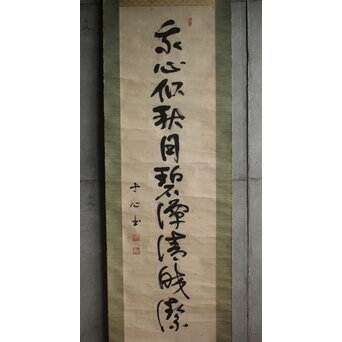 吾心似秋月碧潭清皎潔
子心書